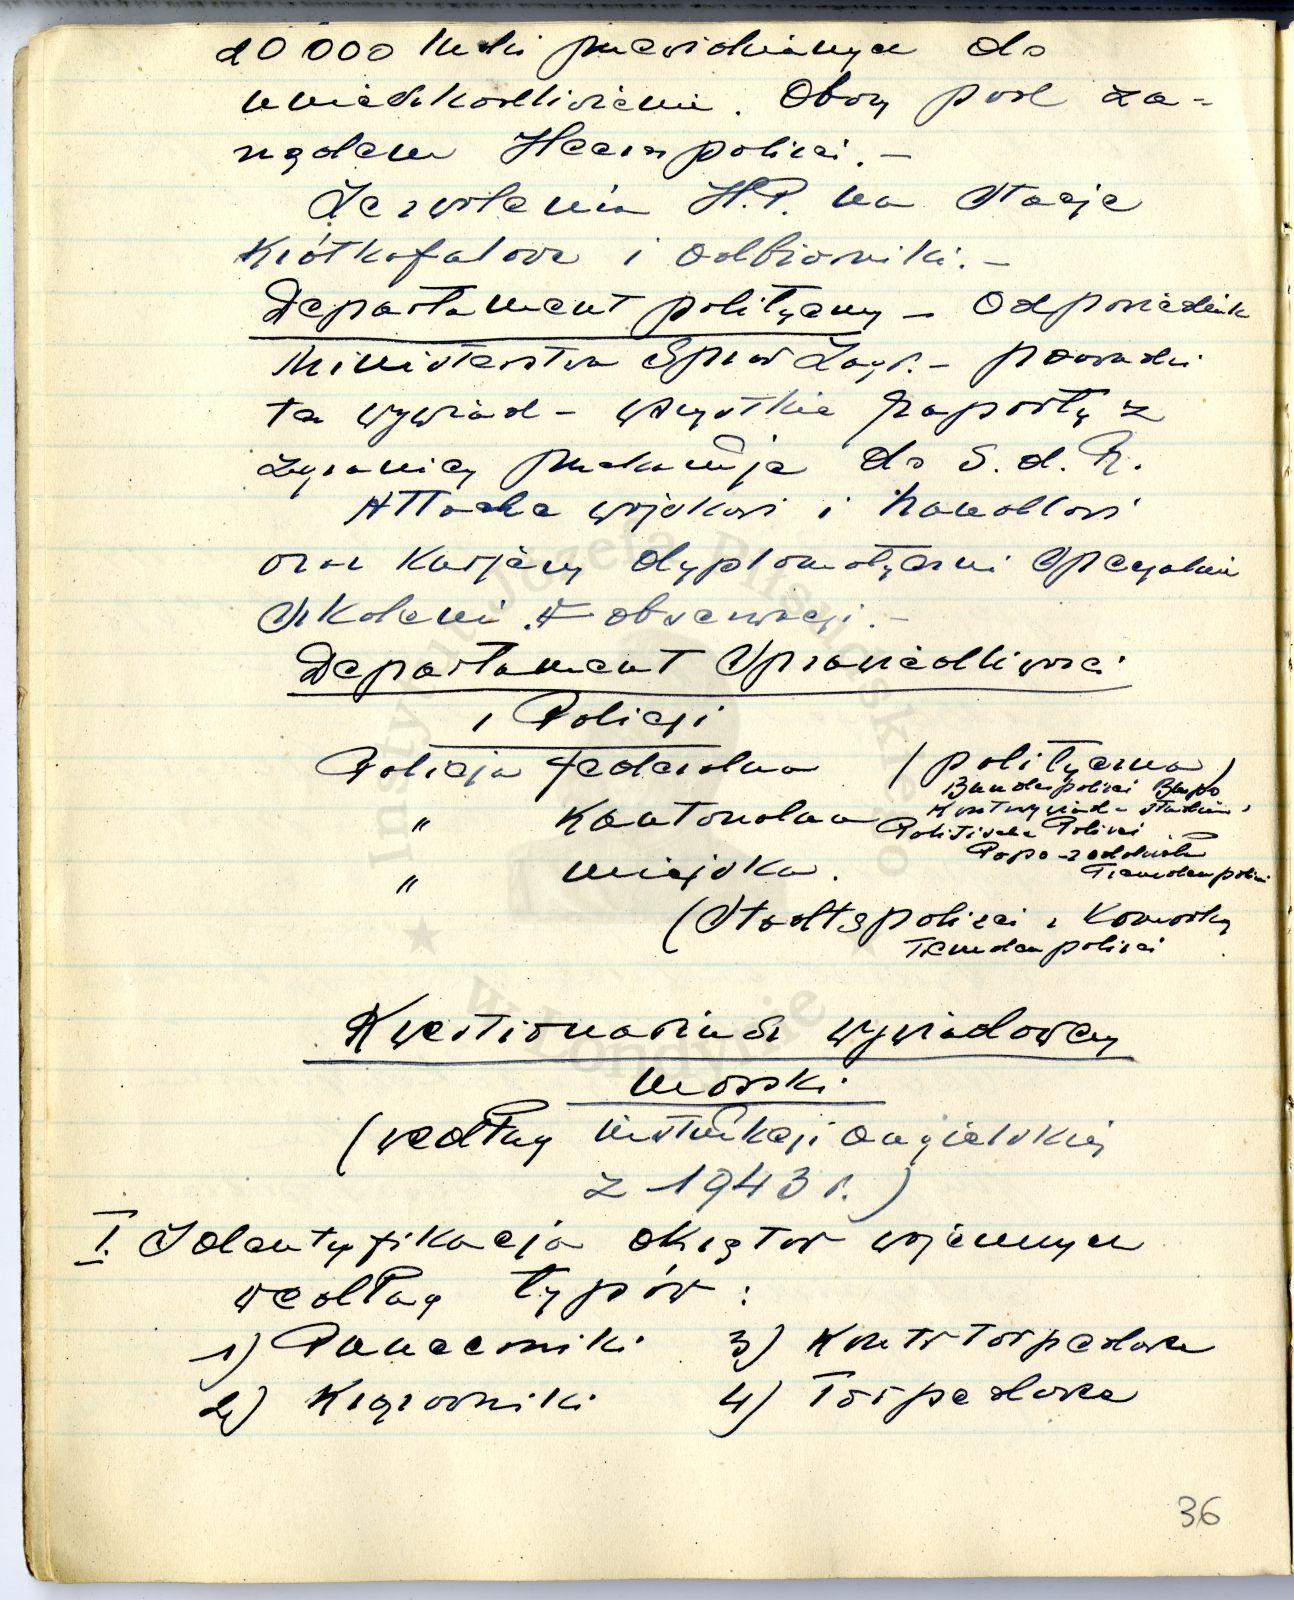 20 000 ludzi przewidzianych do
unieszkodliwienia. Obozy pod za-
rządem Heerespolizei. –
Zezwolenia H.P. na stacje
krótkofalowe i odbiorniki. –
Departament polityczny – Odpowiednik
Ministerstwa Spraw Zagr. – prowadzi
ta wywiad – wszystkie raporty z
zagranicy przekazuje do S.d.R.
Attache wojskowi i handlowi
oraz kurjerzy dyplomatyczni specjalnie
szkoleni w obserwacji. –
Departament Sprawiedliwości
i Policji
Policja federalna (polityczna)
Bundespolizei Bupo
Kontrwywiad –
" kantonalna
Politische Polizei
Popo – oddziela
Fremdenpolizei
" miejska.
(Stadtspolizei i komórka
Fremdenpolizei
Kwestionariusz wywiadowczy
morski
(według instrukcji angielskiej
z 1943 r.)
I. Identyfikacja okrętów wojennych
według typów:
1) Pancerniki 3) Kontrtorpedowce
2) Krążowniki 4) Torpedowce
36
Instytut Józefa Piłsudskiego ★ w Londynie ★